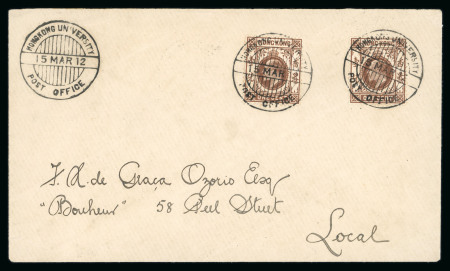 HONGKONG UNIVERSITY
15 MAR 12
POST OFFICE
HONGKONG UNIVERSITY
15 MAR
POST OFFICE
HONGKONG UNIVERSITY
POST OFFICE
F. X. de Graça Ozorio Esq
"Bonheur" 58 Peel Street
Local